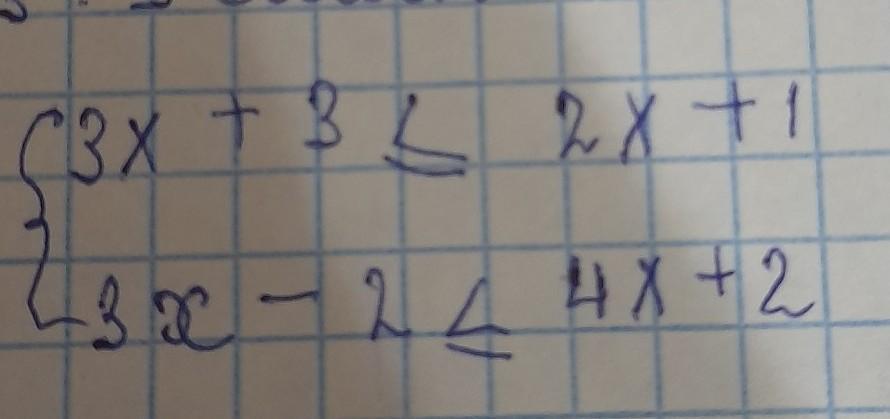 3x + 3 ≤ 2x + 1
3x - 2 ≤ 4x + 2